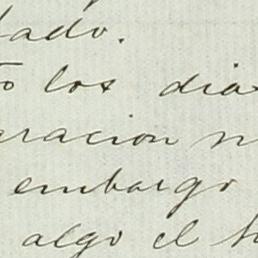 tado.
los dia
racion
embargo
algo el